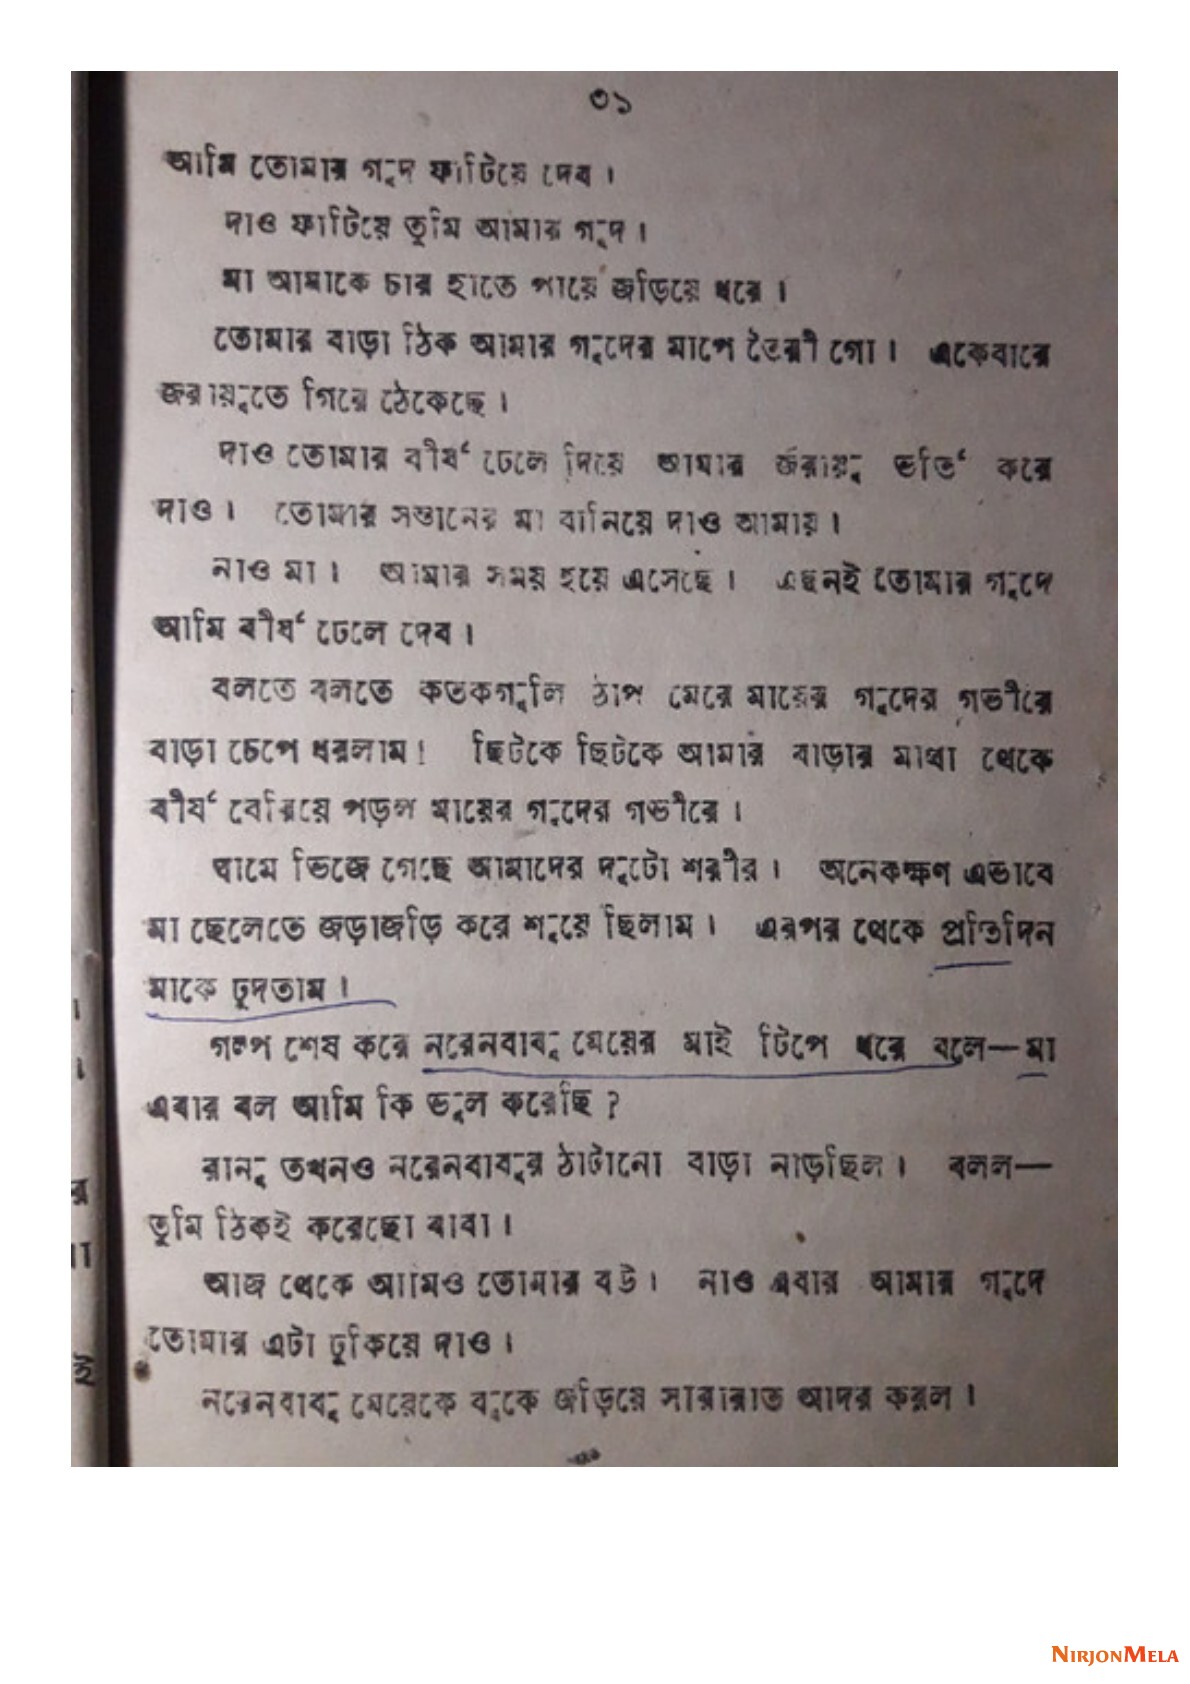 ৩১
আমি তোমার গুদ ফাটিয়ে দেব ।
দাও ফাটিয়ে তুমি আমার গুদ ।
মা আমাকে চার হাতে পায়ে জড়িয়ে ধরে ।
তোমার বাড়া ঠিক আমার গুদের মাপে তৈরী গো ।  একেবারে
জরায়ুতে গিয়ে ঠেকেছে ।
দাও তোমার বীর্য ঢেলে দিয়ে আমার জরায়ু ভর্তি করে
দাও ।  তোমার সন্তানের মা বানিয়ে দাও আমায় ।
নাও মা ।  আমার সময় হয়ে এসেছে ।  এখনই তোমার গুদে
আমি বীর্য ঢেলে দেব ।
বলতে বলতে কতকগুলি ঠাপ মেরে মায়ের গুদের গভীরে
বাড়া চেপে ধরলাম !  ছিটকে ছিটকে আমার বাড়ার মাথা থেকে
বীর্য বেরিয়ে পড়ল মায়ের গুদের গভীরে ।
ঘামে ভিজে গেছে আমাদের দুটো শরীর ।  অনেকক্ষণ এভাবে
মা ছেলেতে জড়াজড়ি করে শুয়ে ছিলাম ।  এরপর থেকে প্রতিদিন
মাকে চুদতাম ।
গল্প শেষ করে নরেনবাবু মেয়ের মাই টিপে ধরে বলে—মা
এবার বল আমি কি ভুল করেছি ?
রানু তখনও নরেনবাবুর ঠাটানো বাড়া নাড়ছিল ।  বলল—
তুমি ঠিকই করেছো বাবা ।
আজ থেকে আমিও তোমার বউ ।  নাও এবার আমার গুদে
তোমার এটা ঢুকিয়ে দাও ।
নরেনবাবু মেয়েকে বুকে জড়িয়ে সারারাত আদর করল ।
NIRJONMELA